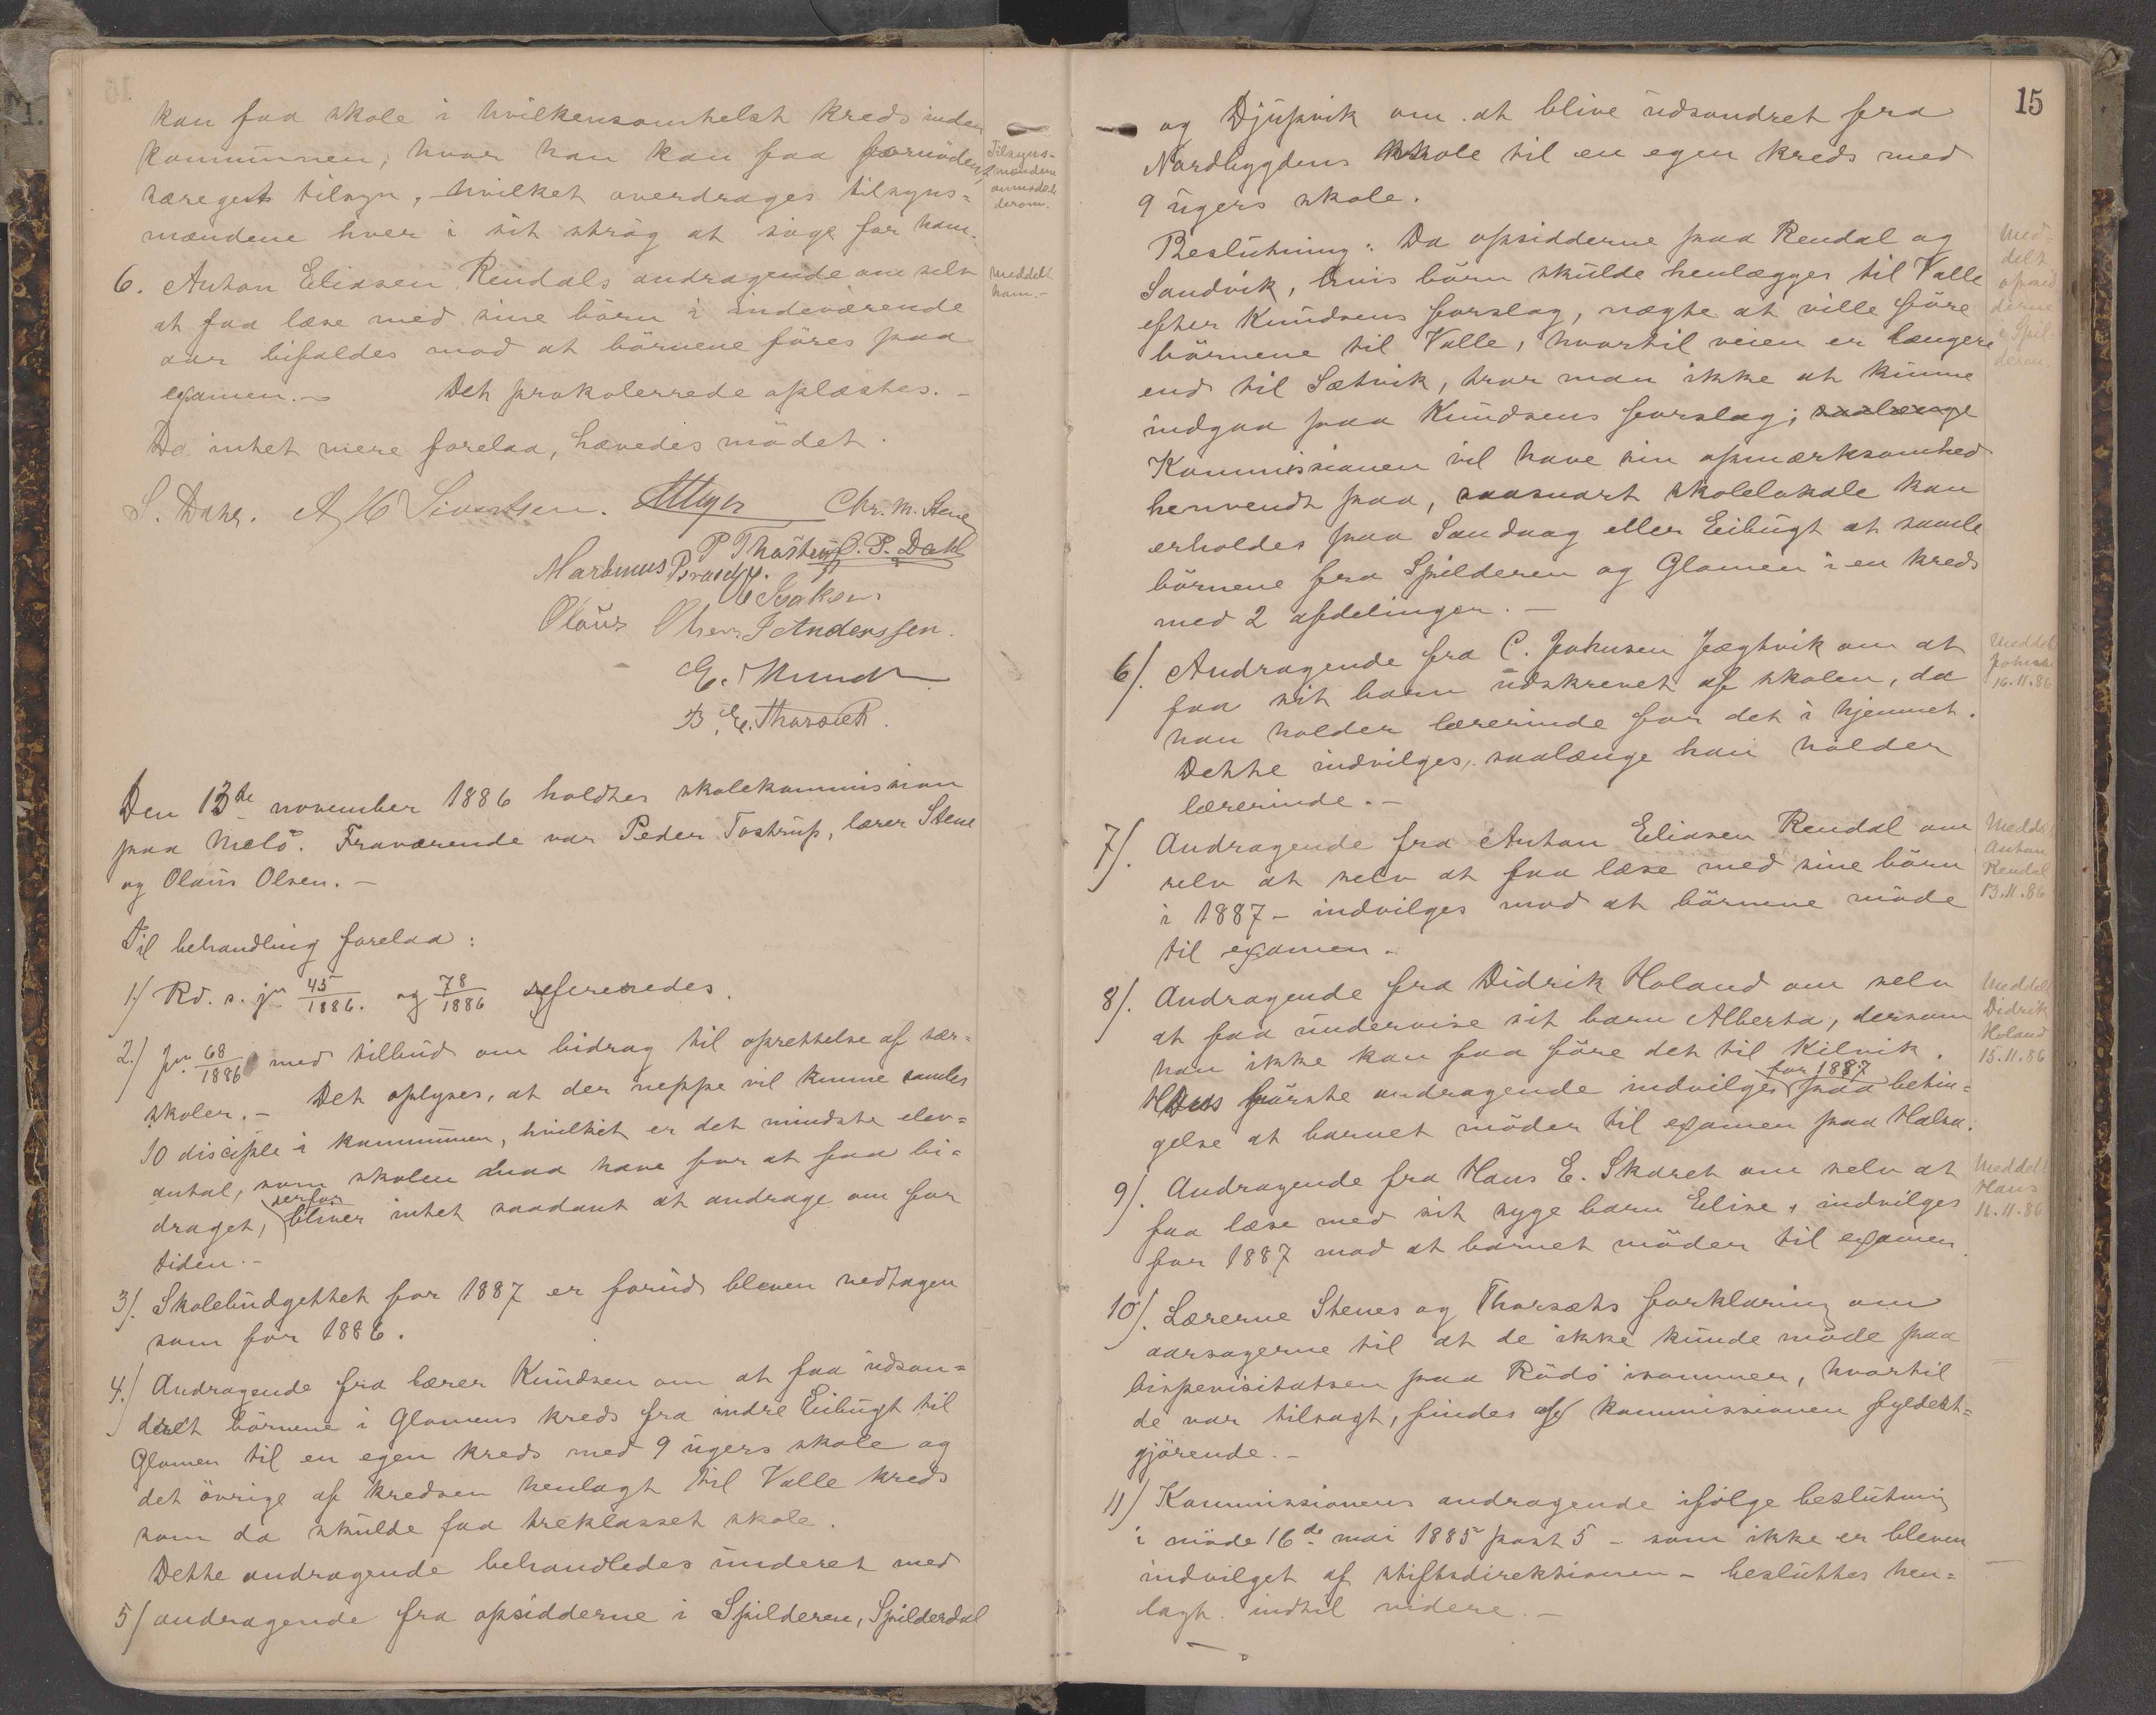 kan faa skole i hvilkensomhelst kreds inden
kommunen, hvor han kan faa fornødent
særegent tilsyn, hvilket overdrages tilsyns=
mændene hver i sit strøg at søge for ham.
Tilsyns-
mændene
anmodet
derom.
6. Anton Eliasen Rendals andragende om selv
at faa læse med sine börn i indeværende
aar bifaldes mod at börnene föres paa
examen. Det protokolerrede oplæstes. -
Meddelt
ham. -
Da intet mere forelaa, hævedes mödet.
S. Dahl. A H Sivertsen. Chr. M. Stene
P Thostrup O. P. Dahl
Martinus
Isaksen
Olaus Olsen J Anderssen.
E. Mund
B. E. Thorsæth.
Den 13de november 1886 holdtes skolekommission
paa Melö. Fraværende var Peder Tostrup, lærer Stene
og Olaus Olsen. -
Til behandling forelaa:
1/ Rd. s. jn 45/1886. og 78/1886 refereredes.
2./ Jn. 68/1886 med tilbud om bidrag til oprettelse af sær=
skoler. - Det oplyses, at der neppe vil kunne samles
10 disciple i kommunen, hvilket er det mindste elev=
antal, som skolen maa have for at faa bi=
draget, derfor bliver intet saadant at andrage om for
tiden. -
3/. Skolebudgettet for 1887 er forud bleven vedtagen
som for 1886.
4./ Andragende fra lærer Knudsen om at faa udson=
dret börnene i Glomens kreds fra indre Eibugt til
Glomen til en egen kreds med 9 ugers skole og
det övrige af kredsen henlagt til Valle kreds
som da skulde faa treklasset skole.
Dette andragende behandledes underet med
5/ andragende fra opsidderne i Spilderen, Spilderdal
15
og Djupvik om at blive udsondret fra
Nordbygdens skole til en egen kreds med
9 ugers skole.
Beslutning: Da opsidderne paa Rendal og
Sandvik, hvis börn skulde henlægges til Valle
efter Knudsens forslag, nægte at ville före
börnene til Valle, hvortil veien er længere
end til Sætvik, tror man ikke at kunne
indgaa paa Knudsens forslag; saalænge
Kommissionen vil have sin opmærksomhed
henvendt paa, saasnart skolelokale kan
erholdes paa Sandaag eller Eibugt at samle
börnene fra Spilderen og Glomen i en kreds
med 2 afdelinger. -
Med=
delt
opsid
derne
i Spil
deren
6/. Andragende fra C. Johnsen Jægtvik om at
faa sit barn udskrevet af skolen, da
han holder lærerinde for det i hjemmet.
Dette indvilges, saalænge han holder
lærerinde. -
Meddelt
Johnsen
16.11.86
7/. Andragende fra Anton Eliasen Rendal om
selv at selv at faa læse med sine börn
i 1887 - indvilges mod at börnene möde
til examen.
Meddelt
Anton
Rendal
13.11.86
8/. Andragende fra Didrik Holand om selv
at faa undervise sit barn Alberta, dersom
han ikke kan faa före det til Kilvik.
Hans förste andragende indvilges for 1887 paa betin=
gelse at barnet möder til examen paa Halsa.
Meddelt
Didrik
Holand
15.11.86
9/. Andragende fra Hans E. Skaret om selv at
faa læse med sit syge barn Elise, indvilges
for 1887 mod at barnet möder til examen.
Meddelt
Hans
16.11.86
10/. Lærerne Stenes og Thorsæts forklaring om
aarsagerne til at de ikke kunde möde paa
bispevisitatsen paa Rödö isommer, hvortil
de var tilsagt, findes af kommissionen fyldest=
gjörende. -
11/ Kommissionens andragende ifölge beslutning
i möde 16de mai 1885 post 5 - som ikke er bleven
indvilget af stiftsdirektionen - besluttes hen=
lagt indtil videre. -